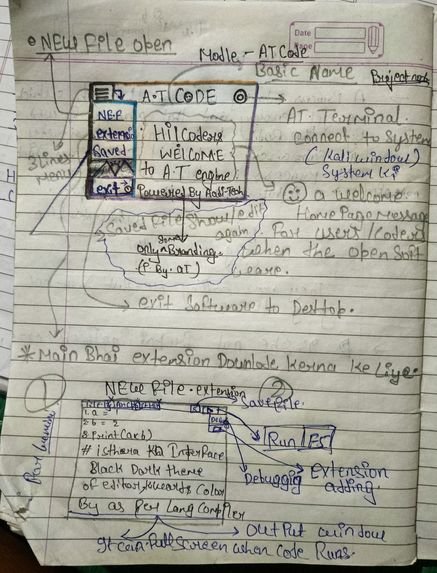 Date
Page
• NEW File open
Modle:- AT Code
Basic Name
Project note
A.T CODE
NEF
extension
Saved
exit
Hi! Coders
WELCOME
to A.T engine).
Powered By Aadi-Tech
3 lines
Menu
AT: Terminal
connect to System
(Kali window)
System ki
a welcome
Home Page Message
For users/Coders
when the open Soft
ware.
Saved File Show/edit
again
only Branding.
(P By. AT)
→ exit Software to Desktop.
*Main Bhai extension Downlode kerna ke Liye.
1
2
NEW File • extension
Save File.
1. a =
2. b = 2
3. Print (a+b)
# is thara ka InterFace
Black Dark theme
of editor, kwards Color
By as per Lang Compiler
Run | F5
Debugging
Extension
adding
→ output window
It can Full Screen when Code Runs.